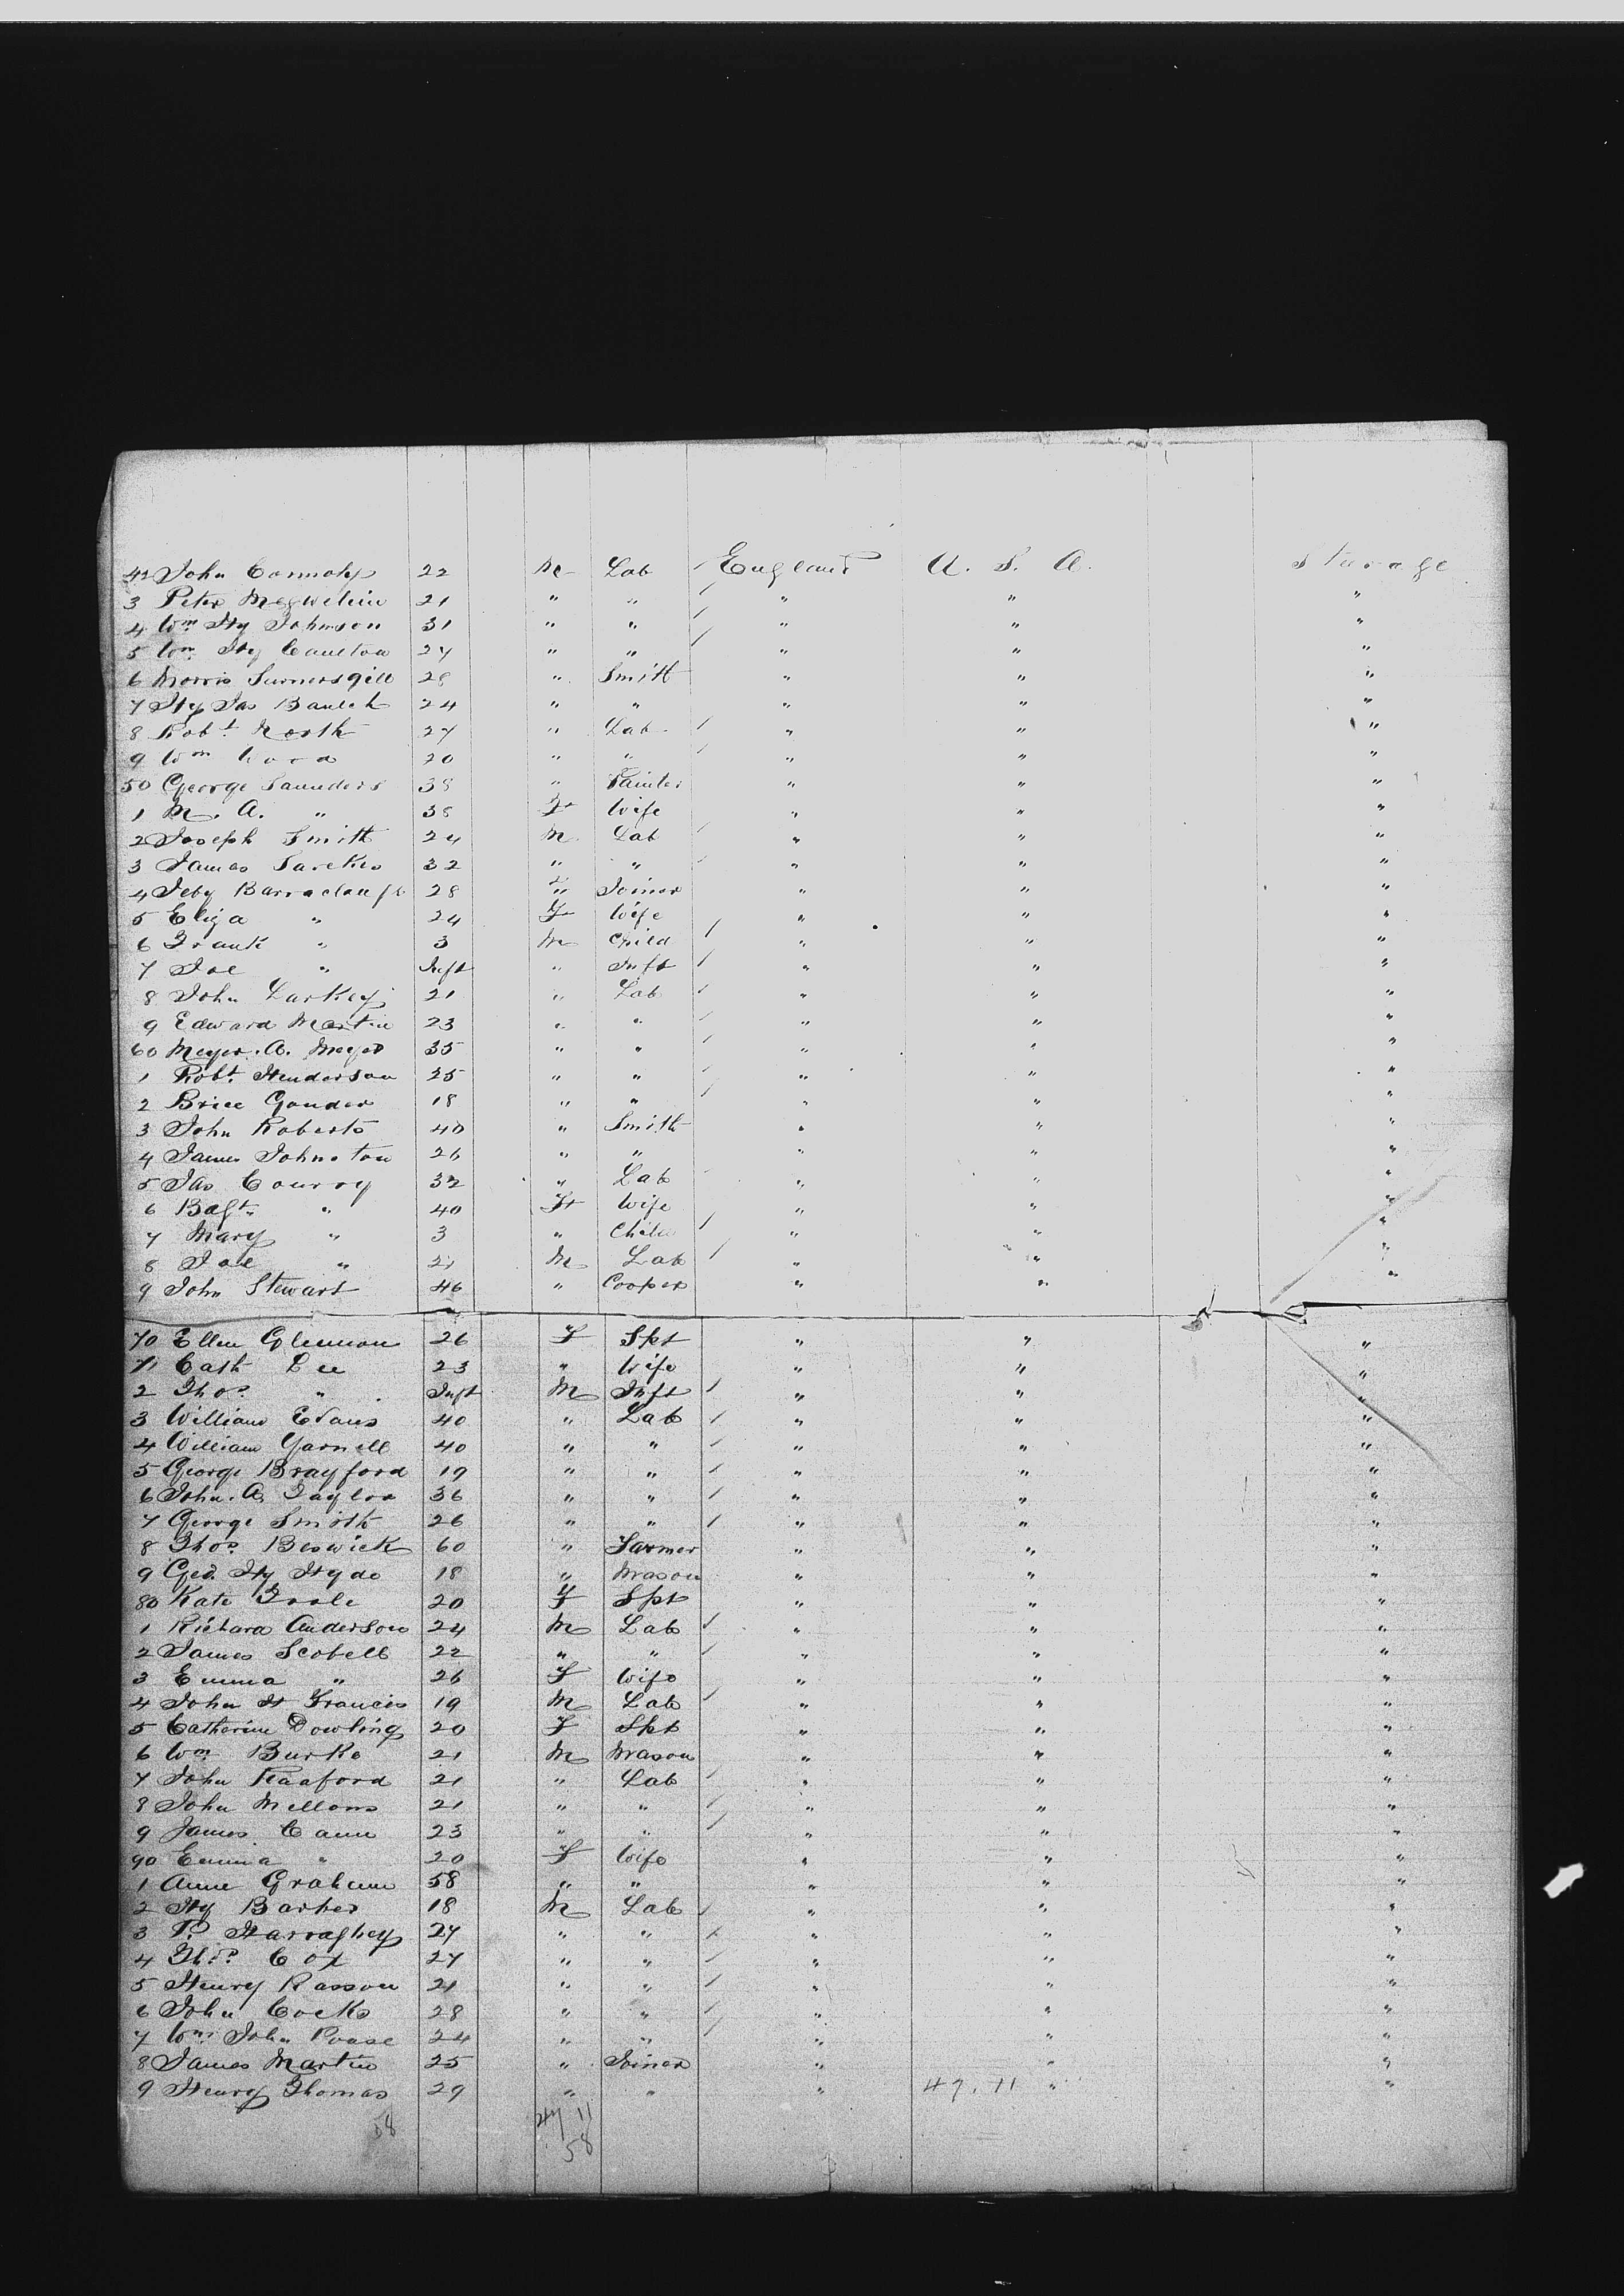 42 John Connoly 22 M Lab England U. S. A. Steerage
3 Peter 21 " " " " "
4 Wm Hy Johnson 31 " " " " "
5 Wm Hy 27 " " " " "
6 Morris Sumersgill 28 " Smith " " "
7 Hy Jas 24 " " " " "
8 Robt North 27 " Lab " " "
9 Wm 20 " " " " "
50 George Saunders 38 " " " "
1 M. A. " 38 F Wife " " "
2 Joseph Smith 24 M Lab " " "
3 James 32 " " " " "
4 Barraclough 28 " Joiner " " "
5 Eliza " 24 F Wife " " "
6 Frank " 3 M Child " " "
7 Joe " Inft " Inft " " "
8 John Larkey 21 " Lab " " "
9 Edward Martin 23 " " " " "
60 Meyer. A. Meyer 35 " " " " "
1 Robt Henderson 25 " " " " "
2 Brice Gouder 18 " " " " "
3 John Roberts 40 " Smith " " "
4 James Johnston 26 " " " " "
5 Jas Conroy 32 " Lab " " "
6 " 40 F Wife " " "
7 Mary " 3 " Child " " "
8 Joe " 21 M Lab " " "
9 John Stewart 46 " Cooper " " "
70 Ellen Glennon 26 F Spt " " "
71 Cath Lee 23 " Wife " " "
2 Thos " Inft M Inft " " "
3 William Evans 40 " Lab " " "
4 William Yarnell 40 " " " " "
5 George Brayford 19 " " " " "
6 John. A. Taylor 36 " " " " "
7 George Smith 26 " " " " "
8 Thos Beswick 60 " Farmer " " "
9 Geo. Hy Hyde 18 " Mason " " "
80 Kate Toole 20 F Spt " " "
1 Richard Anderson 24 M Lab " " "
2 James Scobell 22 " " " " "
3 Emma " 26 F Wife " " "
4 John H Francis 19 M Lab " " "
5 Catherine Dowling 20 F Spt " " "
6 Wm Burke 21 M Mason " " "
7 John Raaford 21 " Lab " " "
8 John Mellows 21 " " " " "
9 James Cann 23 " " " " "
90 Emma " 20 F Wife " " "
1 Anne Graham 58 " " " " "
2 Hy Barber 18 M Lab " " "
3 P. Harraghey 27 " " " " "
4 Thos Cox 27 " " " " "
5 Henry Rasson 21 " " " " "
6 John Cocks 28 " " " " "
7 Wm John 24 " " " " "
8 James Martin 25 " Joiner " " "
9 Henry Thomas 29 " " " 47. 11 " "
58 47 11
58